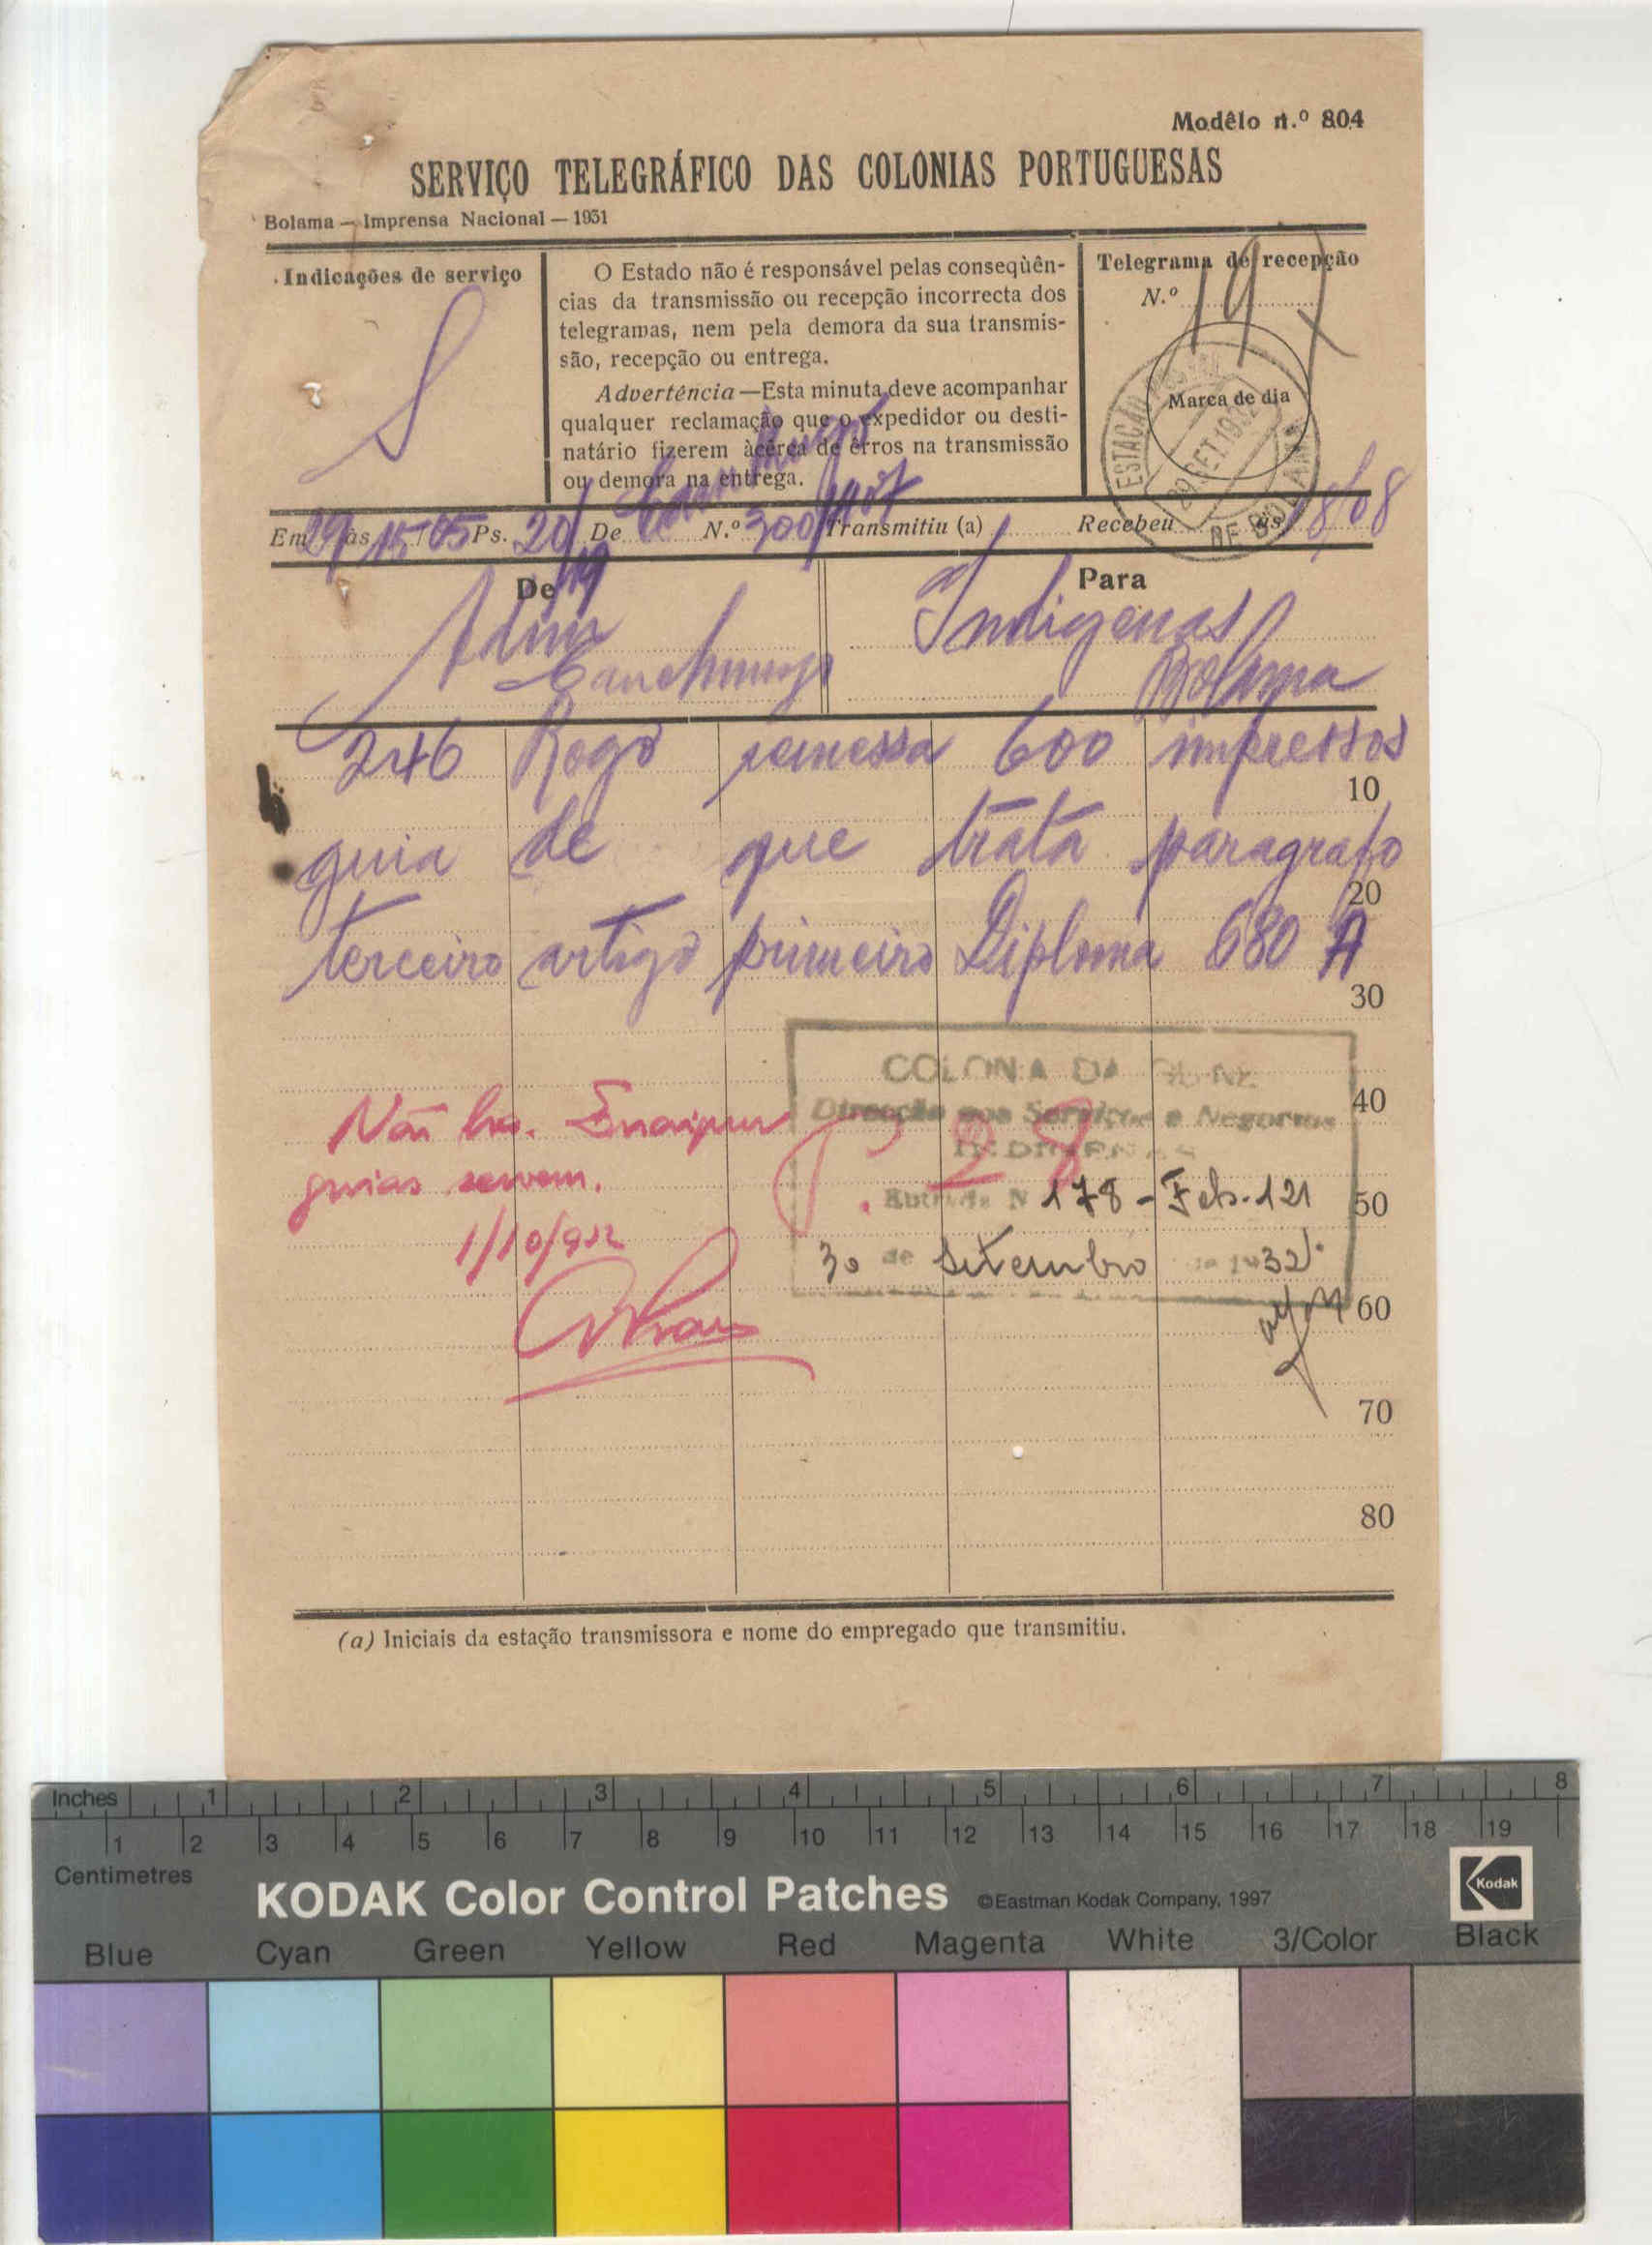 Modêlo n.º 804
SERVIÇO TELEGRÁFICO DAS COLONIAS PORTUGUESAS
Bolama — Imprensa Nacional — 1931
Indicações de serviço
S
O Estado não é responsável pelas conseqüên-
cias da transmissão ou recepção incorrecta dos
telegramas, nem pela demora da sua transmis-
são, recepção ou entrega.
Advertência — Esta minuta deve acompanhar
qualquer reclamação que o expedidor ou desti-
natário fizerem àcêrca de êrros na transmissão
ou demora na entrega.
Telegrama de recepção
N.º 197
Marca de dia
ESTAÇÃO POSTAL DE BOLAMA
29 SET. 1932
Em 29 às 15 T 05 Ps. 20/19 De N.º 300 Transmitiu (a) Recebeu às 18/08
De
Adm
Canchungo
Para
Indigenas
Bolama
246 Rogo remessa 600 impressos
10
guia de que trata paragrafo
20
terceiro artigo primeiro Diploma 680 A
30
COLONIA DA GUINÉ
Direcção dos Serviços e Negocios
INDIGENAS
Entrada N 178 - Feb. 121
30 de Setembro de 1932
Não ha.
guias servem.
1/10/932
P. 28
40
50
60
70
80
(a) Iniciais da estação transmissora e nome do empregado que transmitiu.
Inches 1 2 3 4 5 6 7 8
1 2 3 4 5 6 7 8 9 10 11 12 13 14 15 16 17 18 19
Centimetres
KODAK Color Control Patches ©Eastman Kodak Company, 1997 Kodak
Blue Cyan Green Yellow Red Magenta White 3/Color Black